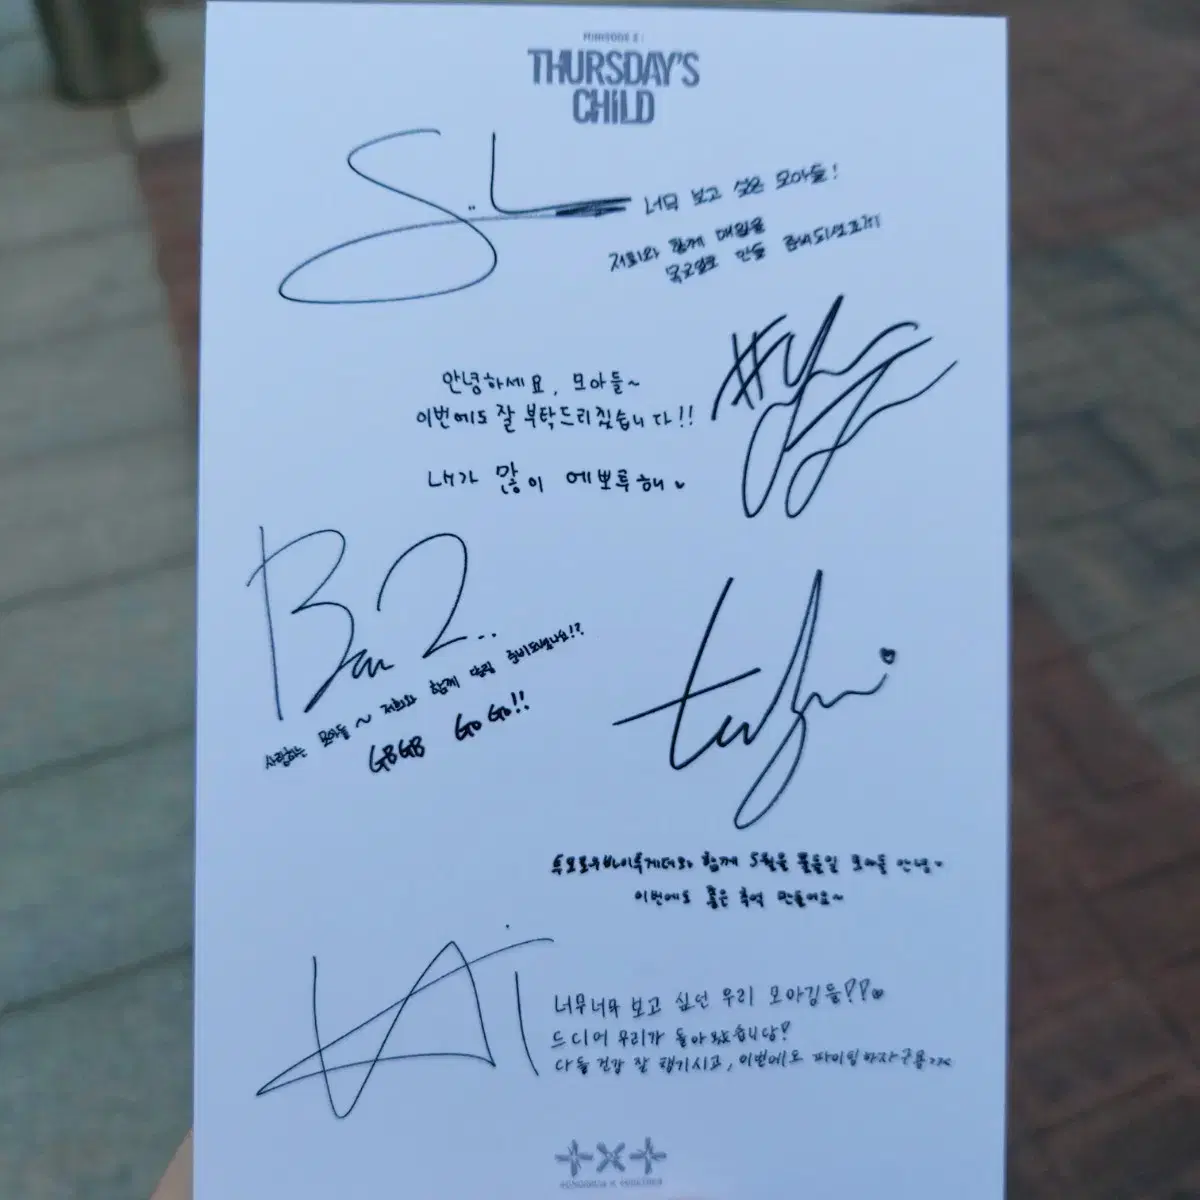 MINISODE 2 :
THURSDAY'S
CHILD
S..L
너무 보고 싶은 모아들!
저희와 함께 매일을
목요일로 만들 준비되셨죠?!
안녕하세요, 모아들~
이번에도 잘 부탁드리겠습니다!!
내가 많이 에뽀뚜해
#
Ban2..
사랑하는 모아들 ~ 저희와 함께 달릴 준비되셨나요!?
GBGB GoGo!!
투모로우바이투게더와 함께 5월을 물들일 모아들 안녕
이번에도 좋은 추억 만들어요~
너무너무 보고 싶던 우리 모아깅들??
드디어 우리가 돌아왔습니당?
다들 건강 잘 챙기시고, 이번에도 파이팅하자구용
TOMORROW X TOGETHER